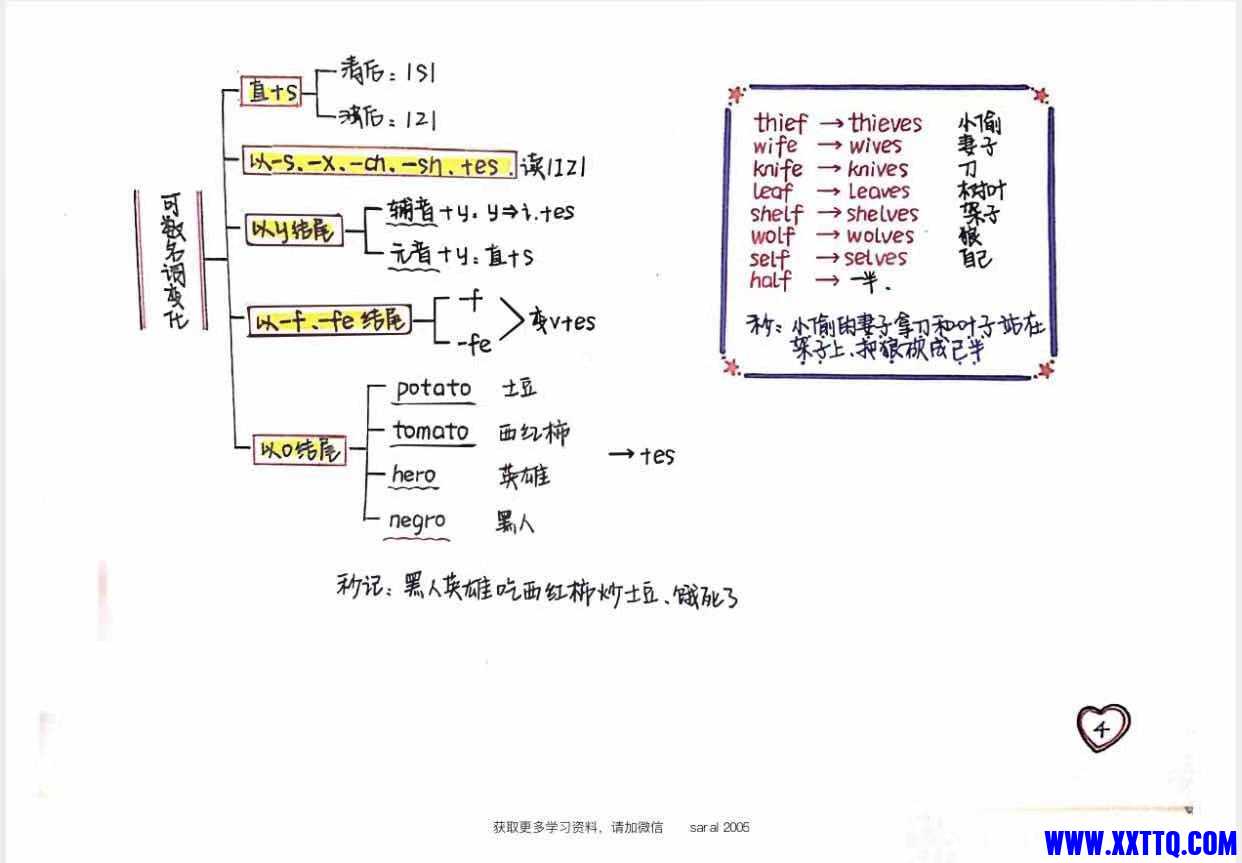 可数名词变化
直+s
清后：|s|
浊后：|z|
以-s、-x、-ch、-sh、+es. 读|ɪz|
以y结尾
辅音+y：y⇒i.+es
元音+y：直+s
以-f、-fe 结尾
-f
-fe
变v+es
以o结尾
potato 土豆
tomato 西红柿
hero 英雄
negro 黑人
→+es
秒记：黑人英雄吃西红柿炒土豆、饿死了
thief → thieves 小偷
wife → wives 妻子
knife → knives 刀
leaf → leaves 树叶
shelf → shelves 架子
wolf → wolves 狼
self → selves 自己
half → 一半.
秒：小偷的妻子拿刀和叶子站在
架子上、把狼砍成己半
4
获取更多学习资料，请加微信 saral 2005
WWW.XXTTQ.COM